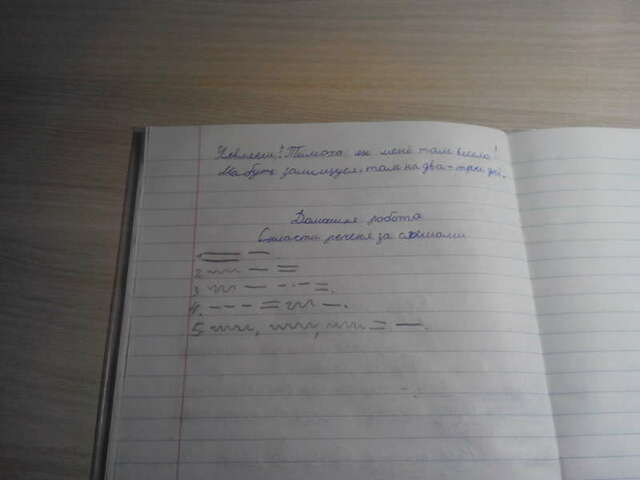 Невмесен! Тимоха як мені там весело!
Мабуть залишуся там на два-три дні.
Домашня робота
Скласти реченя за схемами
1.
2.
3.
4.
5.